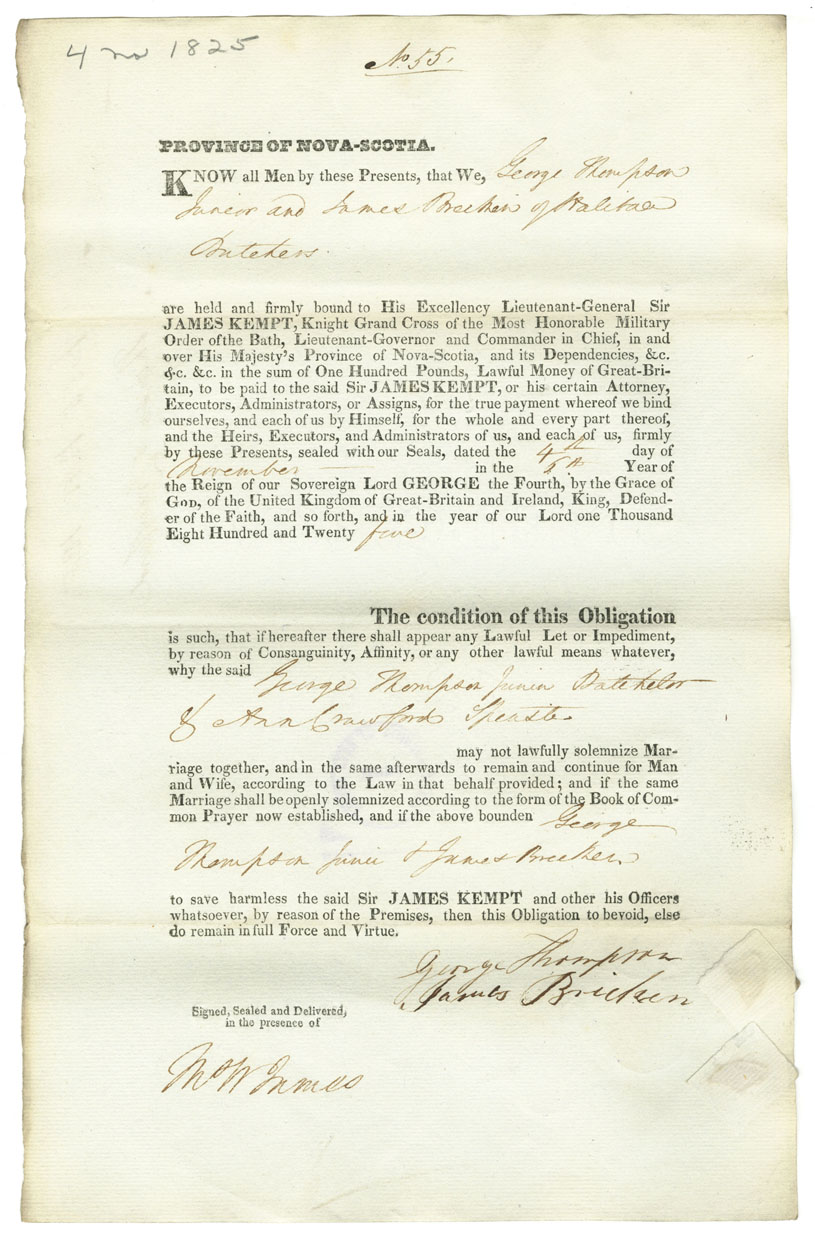 4 no 1825
No. 55.
PROVINCE OF NOVA-SCOTIA.
KNOW all Men by these Presents, that We, George Thompson
Junior and James Breeken of Halifax
Butchers.
are held and firmly bound to His Excellency Lieutenant-General Sir
JAMES KEMPT, Knight Grand Cross of the Most Honorable Military
Order of the Bath, Lieutenant-Governor and Commander in Chief, in and
over His Majesty's Province of Nova-Scotia, and its Dependencies, &c.
&c. &c. in the sum of One Hundred Pounds, Lawful Money of Great-Bri-
tain, to be paid to the said Sir JAMES KEMPT, or his certain Attorney,
Executors, Administrators, or Assigns, for the true payment whereof we bind
ourselves, and each of us by Himself, for the whole and every part thereof,
and the Heirs, Executors, and Administrators of us, and each of us, firmly
by these Presents, sealed with our Seals, dated the 4th day of
November in the 6th Year of
the Reign of our Sovereign Lord GEORGE the Fourth, by the Grace of
GOD, of the United Kingdom of Great-Britain and Ireland, King, Defend-
er of the Faith, and so forth, and in the year of our Lord one Thousand
Eight Hundred and Twenty five
The condition of this Obligation
is such, that if hereafter there shall appear any Lawful Let or Impediment,
by reason of Consanguinity, Affinity, or any other lawful means whatever,
why the said George Thompson Junior Batchelor
& Ann Crawford Spinster
may not lawfully solemnize Mar-
riage together, and in the same afterwards to remain and continue for Man
and Wife, according to the Law in that behalf provided; and if the same
Marriage shall be openly solemnized according to the form of the Book of Com-
mon Prayer now established, and if the above bounden George
Thompson Junior & James Breeken
to save harmless the said Sir JAMES KEMPT and other his Officers
whatsoever, by reason of the Premises, then this Obligation to be void, else
do remain in full Force and Virtue.
George Thompson
James Bricken
Signed, Sealed and Delivered,
in the presence of
James